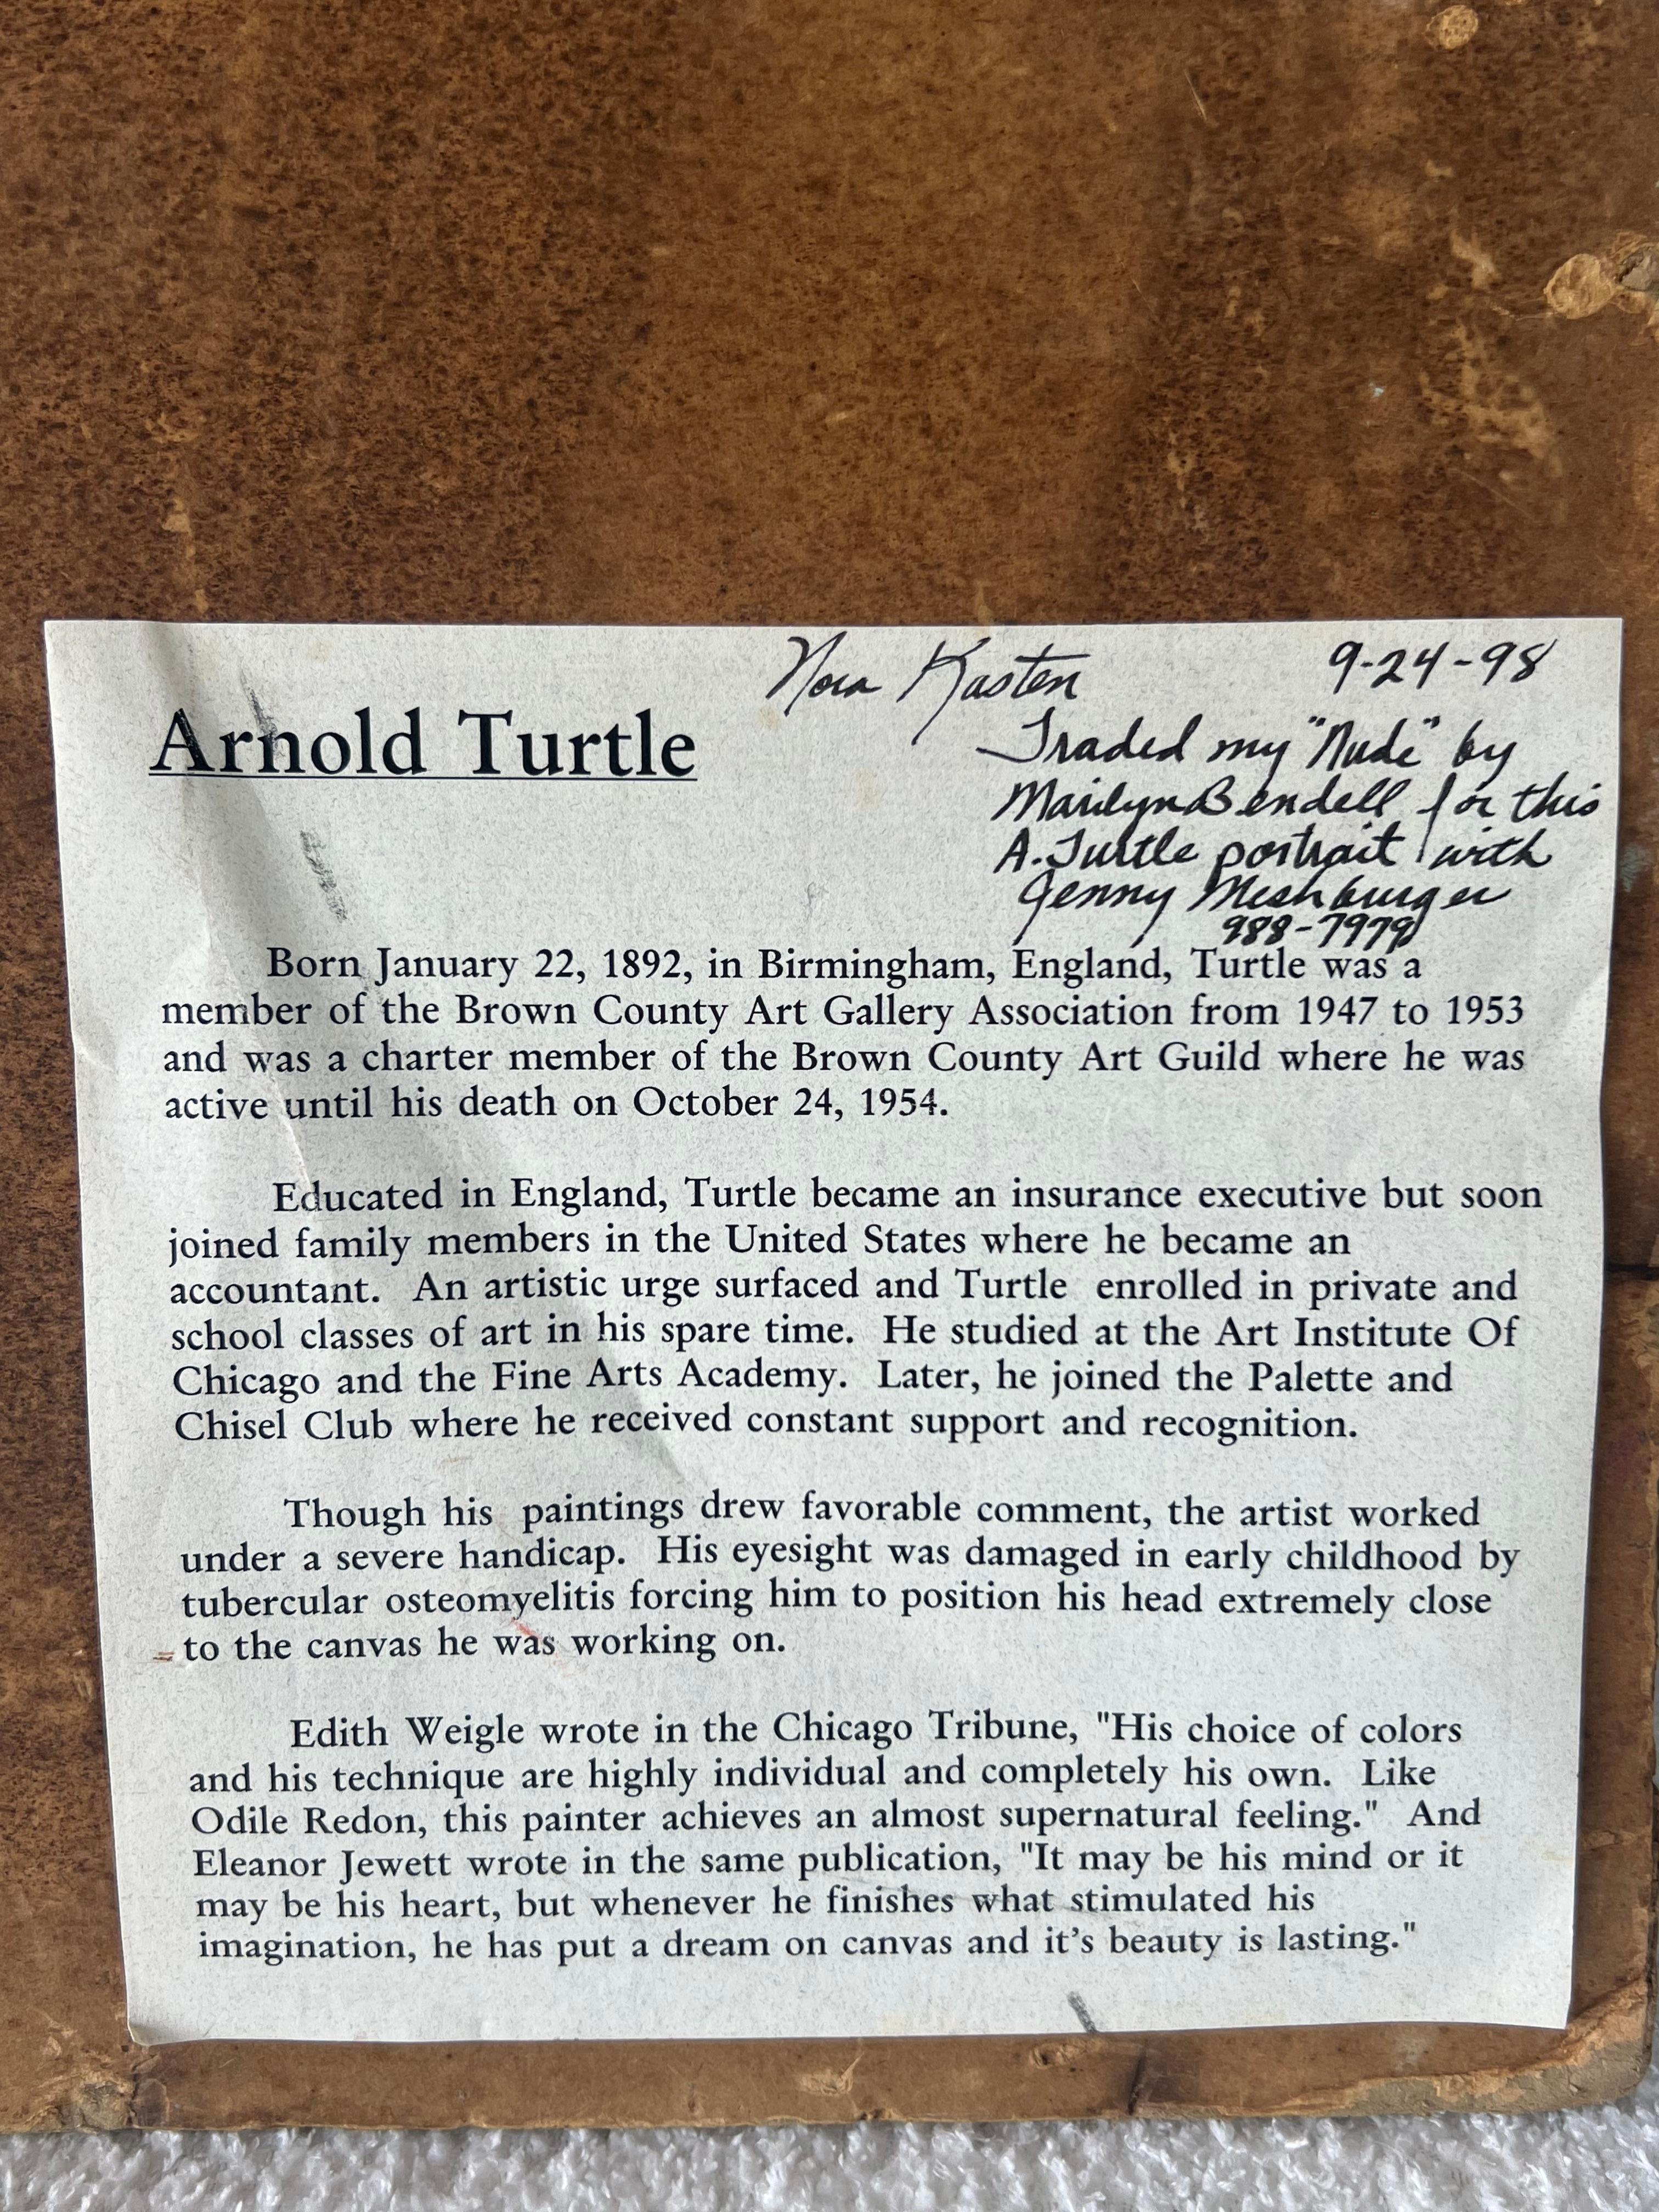 Nora Kasten 9-24-98
Arnold Turtle
Traded my "Nude" by
Marilyn Bendell for this
A. Turtle portrait with
Jenny Meshburger
988-7979
Born January 22, 1892, in Birmingham, England, Turtle was a
member of the Brown County Art Gallery Association from 1947 to 1953
and was a charter member of the Brown County Art Guild where he was
active until his death on October 24, 1954.
Educated in England, Turtle became an insurance executive but soon
joined family members in the United States where he became an
accountant. An artistic urge surfaced and Turtle enrolled in private and
school classes of art in his spare time. He studied at the Art Institute Of
Chicago and the Fine Arts Academy. Later, he joined the Palette and
Chisel Club where he received constant support and recognition.
Though his paintings drew favorable comment, the artist worked
under a severe handicap. His eyesight was damaged in early childhood by
tubercular osteomyelitis forcing him to position his head extremely close
to the canvas he was working on.
Edith Weigle wrote in the Chicago Tribune, "His choice of colors
and his technique are highly individual and completely his own. Like
Odile Redon, this painter achieves an almost supernatural feeling." And
Eleanor Jewett wrote in the same publication, "It may be his mind or it
may be his heart, but whenever he finishes what stimulated his
imagination, he has put a dream on canvas and it's beauty is lasting."